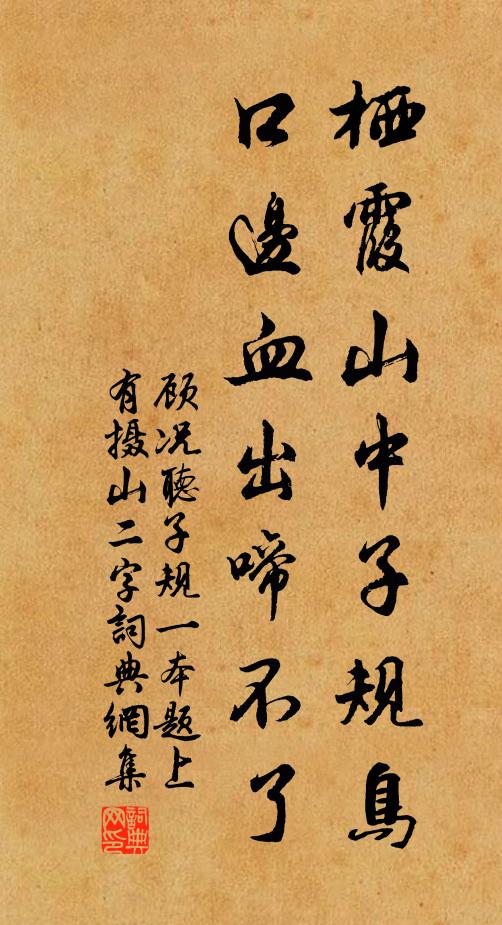 栖霞山中子規鳥
口邊血出啼不了
顾况聽子規一本题上
有摄山二字詞典網集
詞典网印